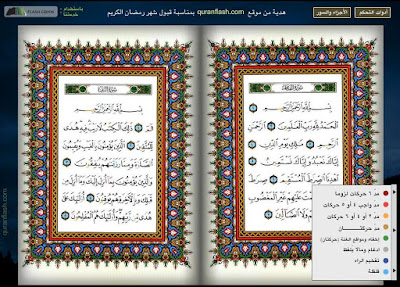 أدوات التحكم
الأجزاء والسور
هدية من موقع quranflash.com بمناسبة قبول شهر رمضان الكريم
سورة الفاتحة
بِسْمِ اللَّهِ الرَّحْمَٰنِ الرَّحِيمِ
الْحَمْدُ لِلَّهِ رَبِّ الْعَٰلَمِينَ الرَّحْمَٰنِ
الرَّحِيمِ مَٰلِكِ يَوْمِ الدِّينِ
إِيَّاكَ نَعْبُدُ وَإِيَّاكَ نَسْتَعِينُ
اهْدِنَا الصِّرَٰطَ الْمُسْتَقِيمَ صِرَٰطَ
عَلَيْهِمْ غَيْرِ الْمَغْضُوبِ
عَلَيْهِمْ وَلَا الضَّالِّينَ
سورة البقرة
بِسْمِ اللَّهِ الرَّحْمَٰنِ الرَّحِيمِ
الم ذَٰلِكَ الْكِتَٰبُ لَا رَيْبَ فِيهِ هُدًى
لِّلْمُتَّقِينَ الَّذِينَ يُؤْمِنُونَ بِالْغَيْبِ وَيُقِيمُونَ
الصَّلَوٰةَ وَمِمَّا رَزَقْنَٰهُمْ يُنفِقُونَ
وَالَّذِينَ يُؤْمِنُونَ بِمَا أُنزِلَ إِلَيْكَ وَمَا أُنزِلَ مِن
قَبْلِكَ وَبِالْآخِرَةِ هُمْ يُوقِنُونَ أُولَٰئِكَ عَلَىٰ
هُدًى مِّن رَّبِّهِمْ وَأُولَٰئِكَ هُمُ الْمُفْلِحُونَ
مد ٦ حركات لزوما
مد واجب ٤ أو ٥ حركات
مد ٢ أو ٤ أو ٦ حركات
مد حركتــــان
إخفاء ومواقع الغنة (حركتان)
ادغام ومالا يلفظ
تفخيم الراء
قلقلة
quranflash.com